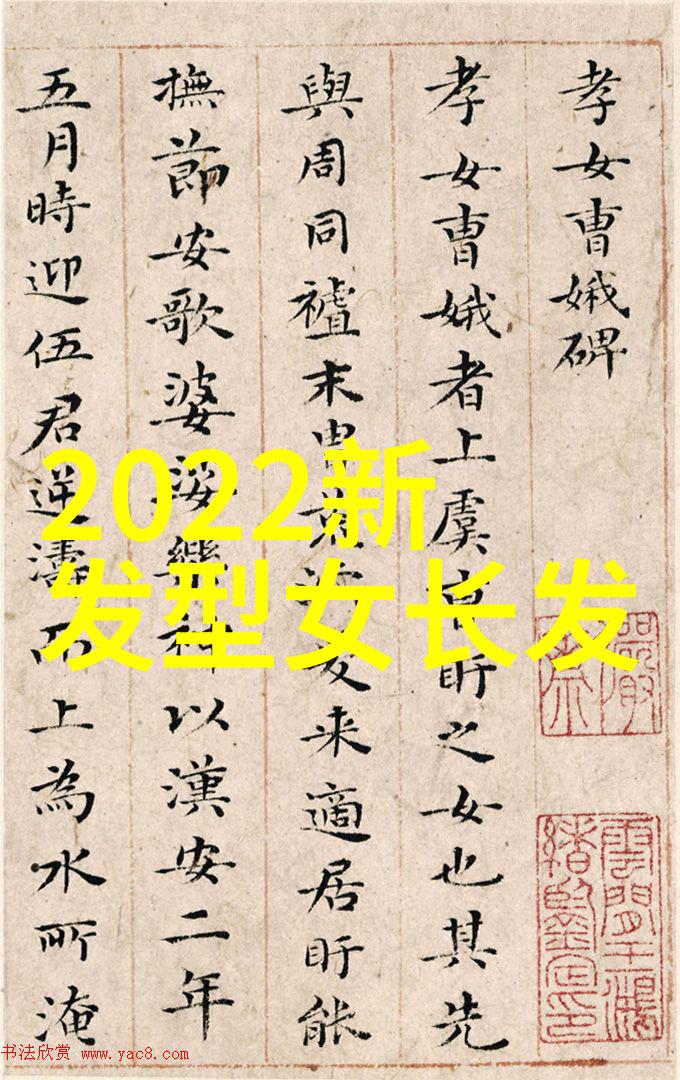 孝女曹娥碑
孝女曹娥者上虞曹盱之女也其先
與周同末胄荒爰来適居盱能
撫節安歌婆娑樂神以漢安二年
五月時迎伍君逆濤而上為水所淹
2022新
发型女长发
书法欣赏 www.yac8.com